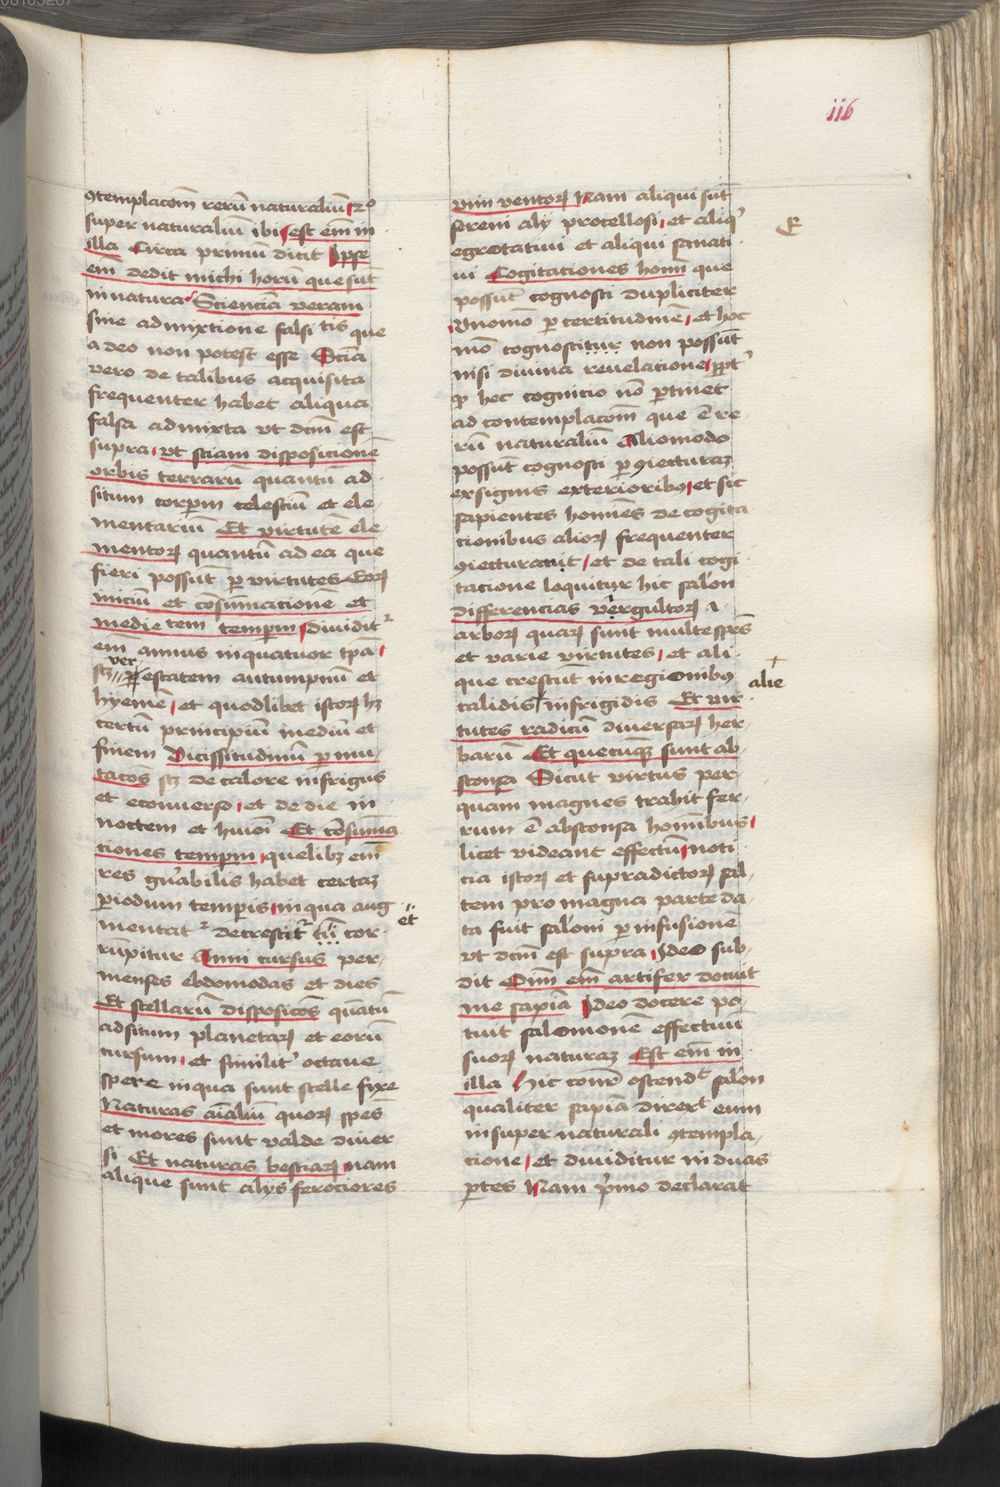 00105267
116
ꝯtemplacōm rerū naturaliū 2º
super naturaliū ibi est em̄ in
illa Circa primū dicit Ipse
em̄ dedit michi horū que sūt
in natura Scienciā veram
sine admixtione falsi tis que
a deo non potest esse Sciā
vero de talibus acquisita
frequenter habet aliqua
falsa admixta vt dcm̄ est
supra vt sciam disposicionē
orbis terrarū quantū ad
situm corꝑm celestiū et ele
mentariū Et virtutē ele
mentoꝝ quantū ad ea que
fieri possūt ꝑ virtutes eoꝝ
iniciū et cōsumacionē et
medietem tempoꝝm dividit᷑
em̄ annus in quatuor tꝑa
ver
scz estatem autumpnū et
hyemē et quodlibet istoꝝ hꝫ
certū principiū mediū et
finem Vicissitudinū ꝑmu
tacōs scz de calore in frigus
et econuerso et de die in
noctem et huiōi Et cōsuma
tiones tempm quelibꝫ em̄
res gn̄abilis habet certaꝫ
ꝑiodum temꝑis in qua aug
et
mentat᷑ decrescit᷑ tū cor
rūpitur Anni cursus per
menses ebdomodas et dies
Et stellarū disposicōes quātū
ad situm planetaꝝ et eorū
cursum et similit᷑ octaue
spere in qua sunt stelle fixe
Naturas aīaliū quoꝝ sꝑes
et mores sunt valde diuer
si Et naturas bestiaꝝ nam
alique sunt alijs ferociores
vim ventoꝝ Nam aliqui sūt
sereni alij protellosi et aliqͥ
egrotatiui et aliqui sanati
ui Cogitationes homī que
possūt cognosci dupliciter
Vnomō ꝑ certitudinē et hoc
mō cognoscitur non possūt
nisi diuina reuelatione ꝓpt᷑
qꝫ hec cognicio nō ꝑtinet
ad contemplacōm que ē re
rū naturaliū Aliomodo
possūt cognosci ꝑ ꝯiecturaꝫ
ex signis exterioribꝰ et sic
sapientes homīes de cogita
cionibus alioꝝ frequenter
ꝯiecturant et de tali cogi
tacione loquitur hic salōn
differencias vergultoꝝ ⁊
arboꝝ quaꝝ sunt multe sꝑēs
et varie virtutes et ali
que crescūt in regionibꝰ
alie
calidis in frigidis Et vir
tutes radicū diuersaꝝ her
barū Et quecūqꝫ sunt ab
sconsa Sicut virtus per
quam magnes trahit fer
rum ē absconsa hominibus
licet videant effectū noti
cia istoꝝ et supradictoꝝ sal
tem pro magna parte da
ta fuit salōni ꝑ infusionē
vt dcm̄ est supra Ideo sub
dit Omī em̄ artifex docuit
me sapīa Ideo docere po
tuit salomonē effectiuū
suoꝝ naturaꝫ Est em̄ in
illa Hic cōnr̄ ostendit salōn
qualiter sapīa direxit eum
in super naturali ꝯtempla
cione et diuiditur in duas
ꝑtes Nam pͥmo declarat